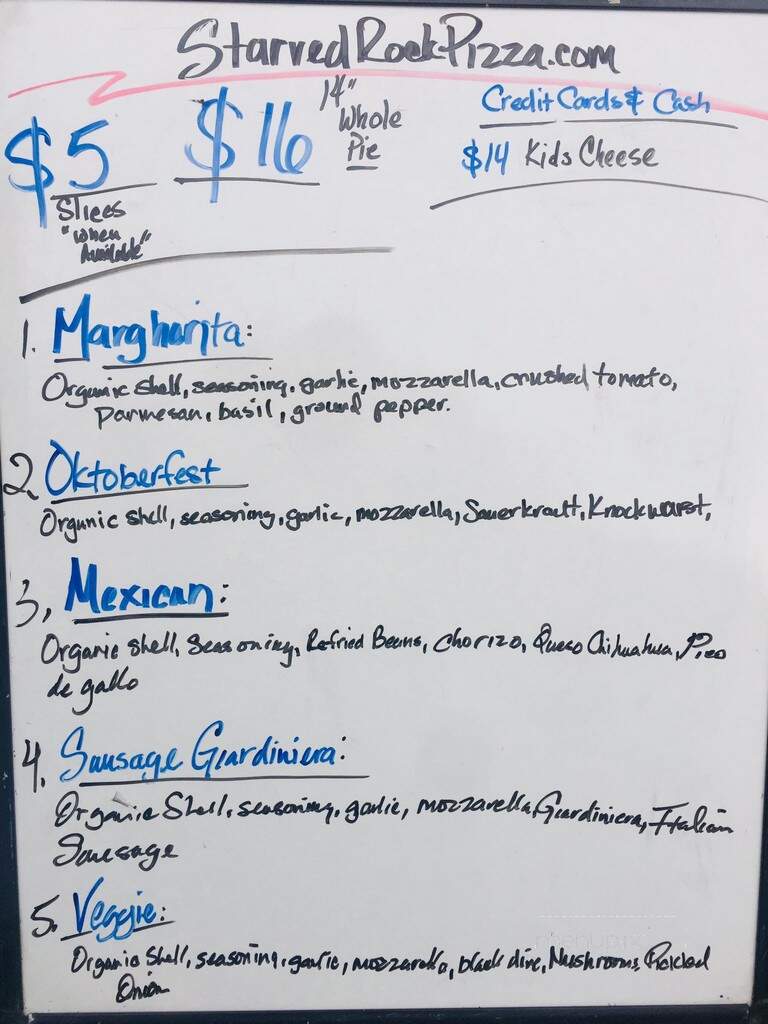 StarvedRockPizza.com
$5
Slices
"When
Available"
$16
14"
Whole
Pie
Credit Cards & Cash
$14 Kids Cheese
1. Margharita:
Organic shell, seasoning, garlic, mozzarella, crushed tomato,
parmesan, basil, ground pepper.
2. Oktoberfest
Organic shell, seasoning, garlic, mozzarella, Sauerkraut, Knockwurst,
3, Mexican:
Organic shell, seasoning, Refried Beans, chorizo, Queso Chihuahua, Pico
de gallo
4. Sausage Giardiniera:
Organic Shell, seasoning, garlic, mozzarella, Giardiniera, Italian
Sausage
5. Veggie:
Organic Shell, seasoning, garlic, mozzarella, black olive, Mushrooms, Pickled
Onion